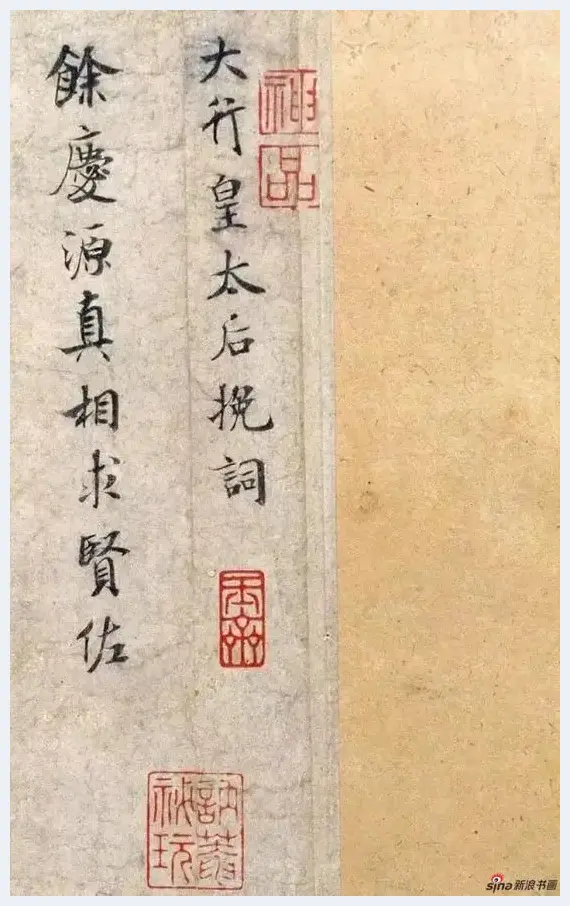 神品
大行皇太后挽詞
餘慶源真相求賢佐
sina新浪书画